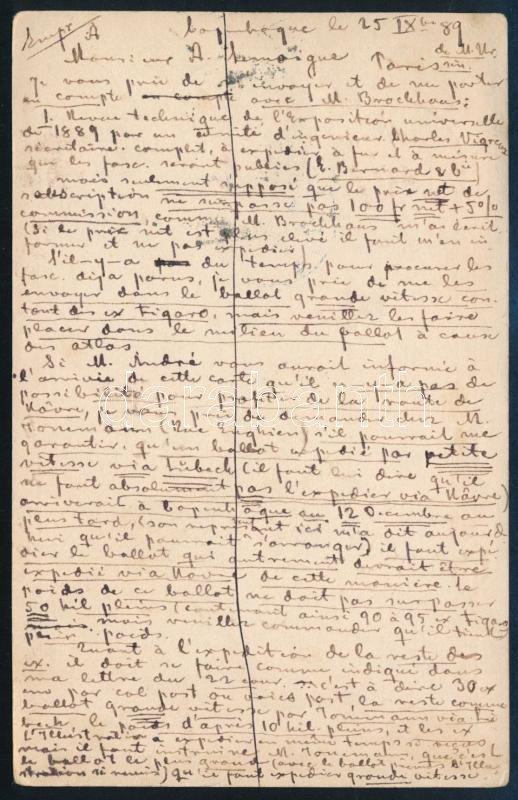 le 25 IXbre 89
Monsieur A. Paris
Je vous prie de envoyer et de me porter
en compte avec M. Brockhaus:
1 Revue technique de l'Exposition universelle
de 1889 par un comité d'ingenieur Charles Vigreux
secrétaire. complet, à expédier à fur et à mésure
que les fasc. seront publiés (E. Bernard &
mais seulement supposé que le prix net de
souscription ne surpasse pas 100 fr net + 5%
commission, comme M. Brockhaus m'a écrit.
(Si le prix net est plus élevé il faut m'en in
former et ne pas expédier)
S'il-y-a du temps pour procurer les
fasc. déja parus, je vous prie de me les
envoyer dans le ballot grande vitesse con-
tant des ex Figaro, mais veuillez les faire
placer dans le milieu du ballot à cause
des atlas
Si M. André vous aurait informé à
l'arrivée de cette carte qu'il n'y a pas de
possibilité pour profiter de la route de
Hâvre, je vous prie de demander chez M.
(Rue Enghien) s'il pourrait me
garantir, qu'un ballot expédié par petite
vitesse via Lübeck (il faut lui dire qu'il
ne faut absolument pas l'expédier via Hâvre)
arriverait à que au 12 Decembre au
plus tard, (son ici m'a dit aujourd
hui qu'il pourrait s'arranger) il faut expé
dier le ballot qui autrement devrait être
expédié via Hâvre de cette manière. le
poids de ce ballot ne doit pas surpasser
50 kil pleins (contenant ainsi 90 à 95 ex Figaro
mais veuillez commander qu'il
poids.
Quant à l'expédition de la reste des
ex. il doit se faire comme indiqué dans
ma lettre du 22 cour. c'est à dire 30 ex
par col post ou voies post, la reste comme
ballot grande vitesse par via Lü
beck le poids d'après 10 kil pleins, et les ex
L'Illustration à expédier en même temps si
mais il faut instruire M. que c'est
le ballot le plus grand (avec le ballot L'Illu
stration si ) qu'il faut expédier grande vitesse.
darabanth